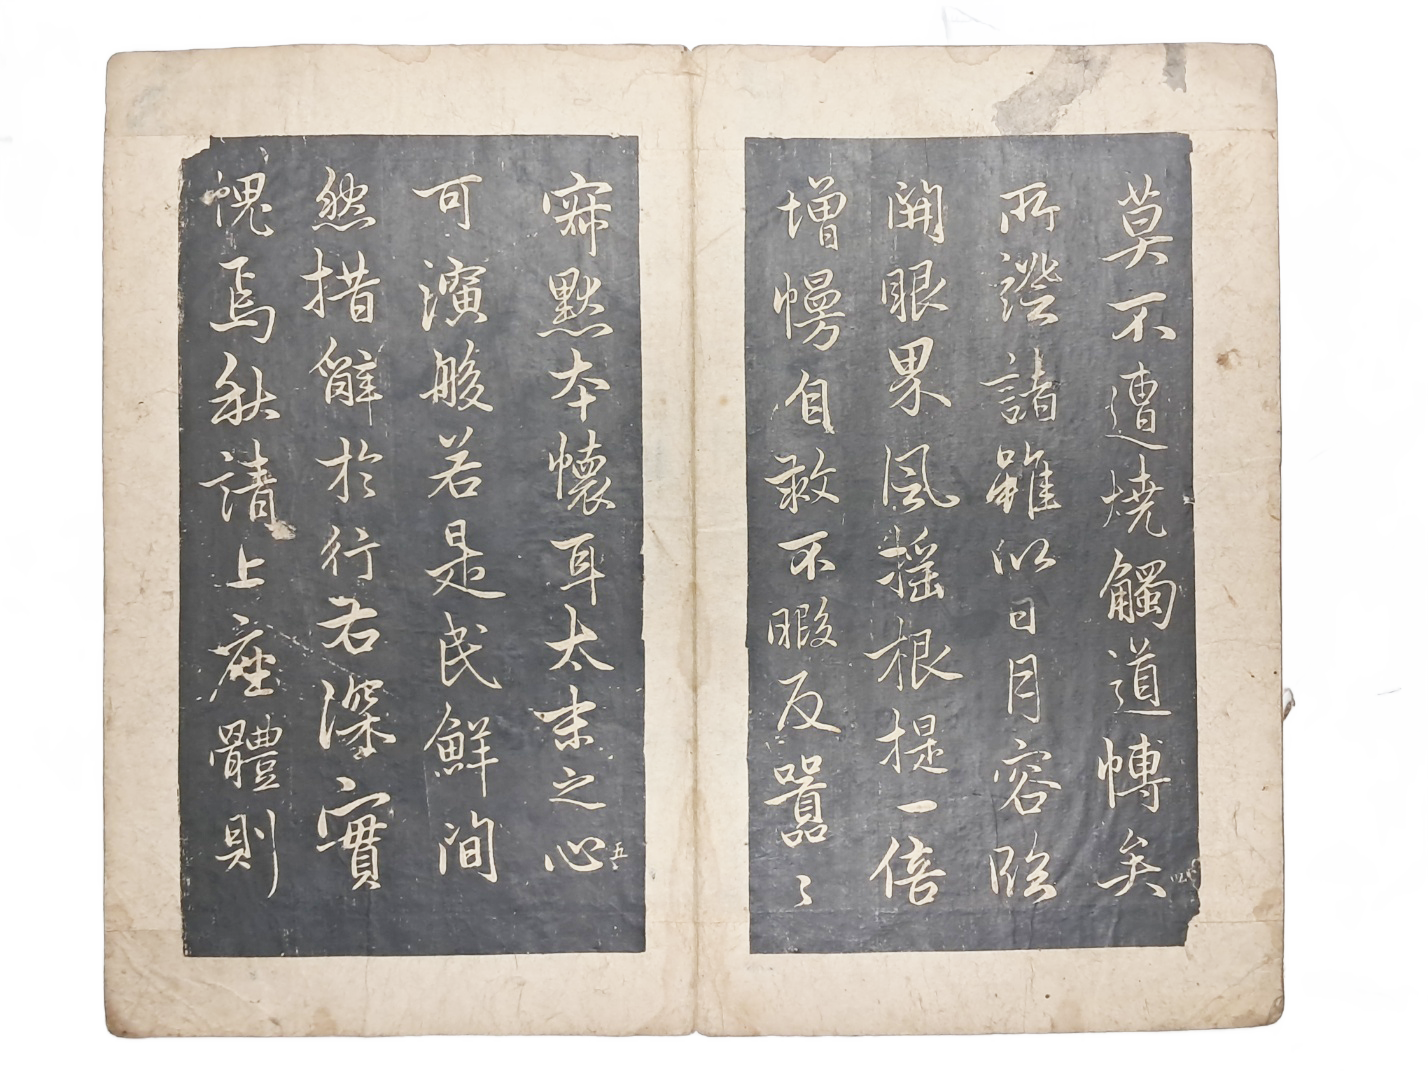 莫不遭燒觸道愽矣
四
所證諸雖似日月容臨
開眼界風搖根提一倍
增慢自救不暇反囂々
寂默本懷耳太末之心
五
可演般若是民鮮間
然措解於行若深實
愧焉秋請上座體則